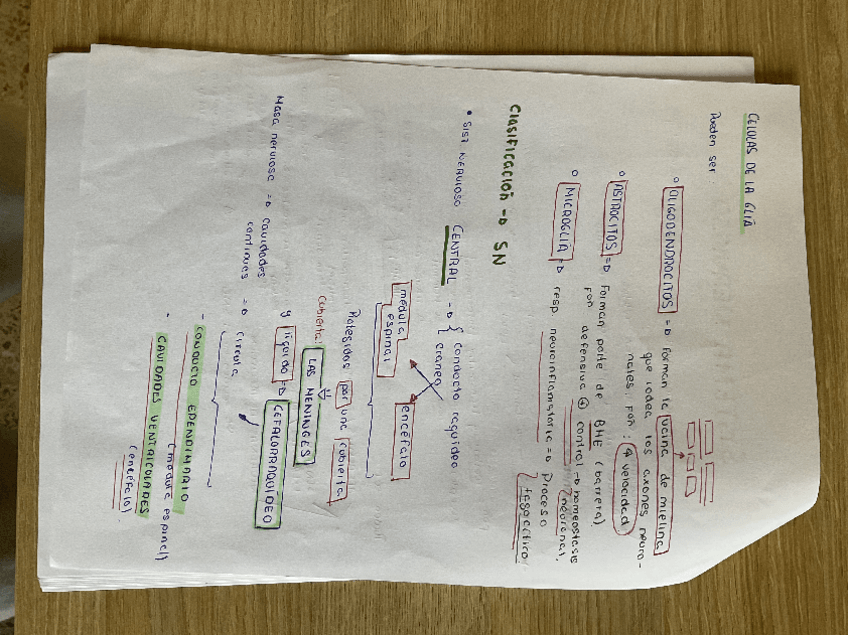 CÉLULAS DE LA GLÍA
Pueden ser
OLIGODENDROCITOS => forman la vaina de mielina
que rodea los axones neuro-
nales. Fon: velocidad
ASTROCITOS => Forman parte de BHE (barrera)
Fon defensiva ⊕ control → homeostasis
neuronal.
MICROGLÍA => resp. neuroinflamatoria => Proceso
Fagocítico
Clasificación → SN
• SIST NERVIOSO CENTRAL → { conducto raquídeo
cráneo
médula
espinal
encéfalo
Protegidas por una cubierta
cubierta:
LAS MENINGES
y líquido => CEFALORRAQUIDEO
Masa nerviosa => cavidades
continues => circula
- CONDUCTO EPENDIMARIO
(médula espinal)
- CAVIDADES VENTRICOLADES
(encéfalo)